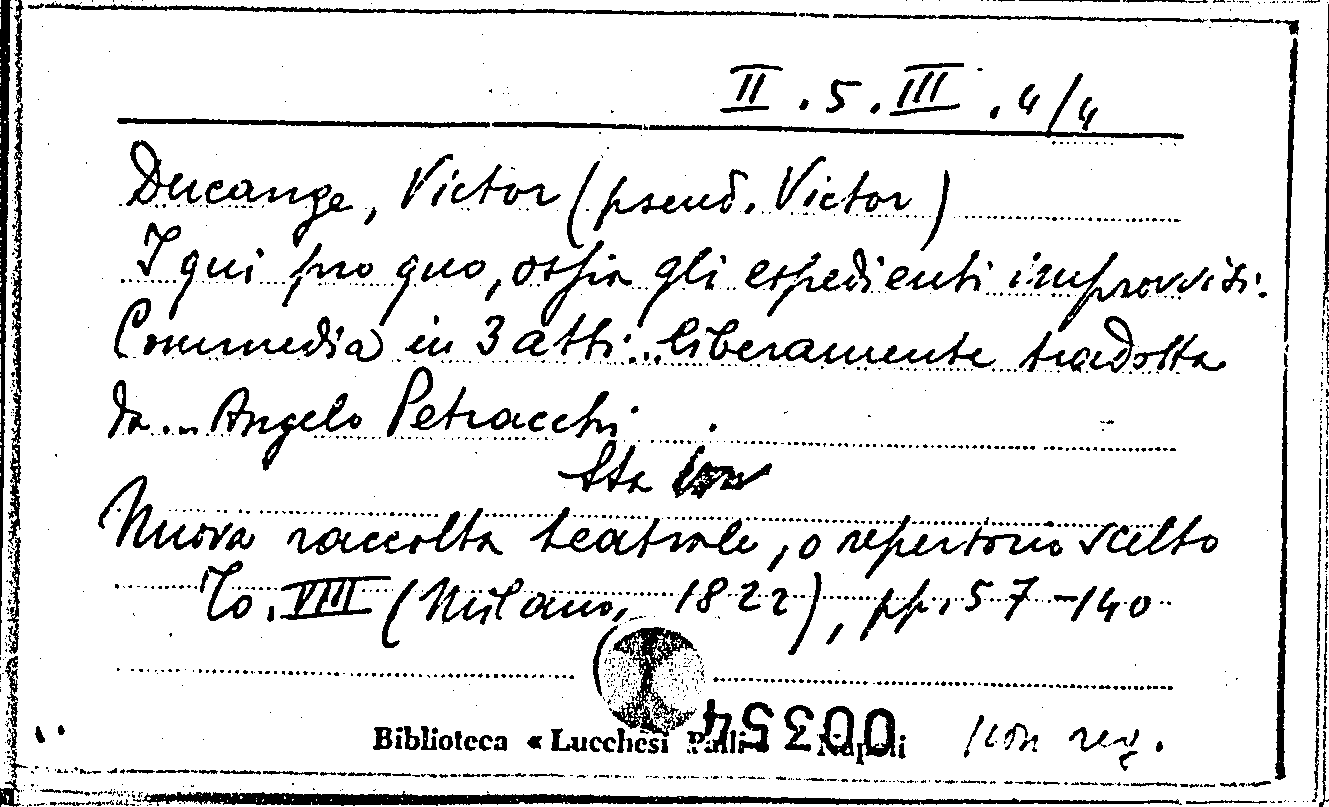 II.5.III.4/4
Ducange, Victor (pseud. Victor)
I qui pro quo, ossia gli espedienti improvvisi.
Commedia in 3 atti... liberamente tradotta
da... Angelo Petracchi.
Sta con
Nuova raccolta teatrale, o repertorio scelto
To. VIII (Milano, 1822), pp. 57-140
Biblioteca « Lucchesi Palli » Napoli
00354
non reg.